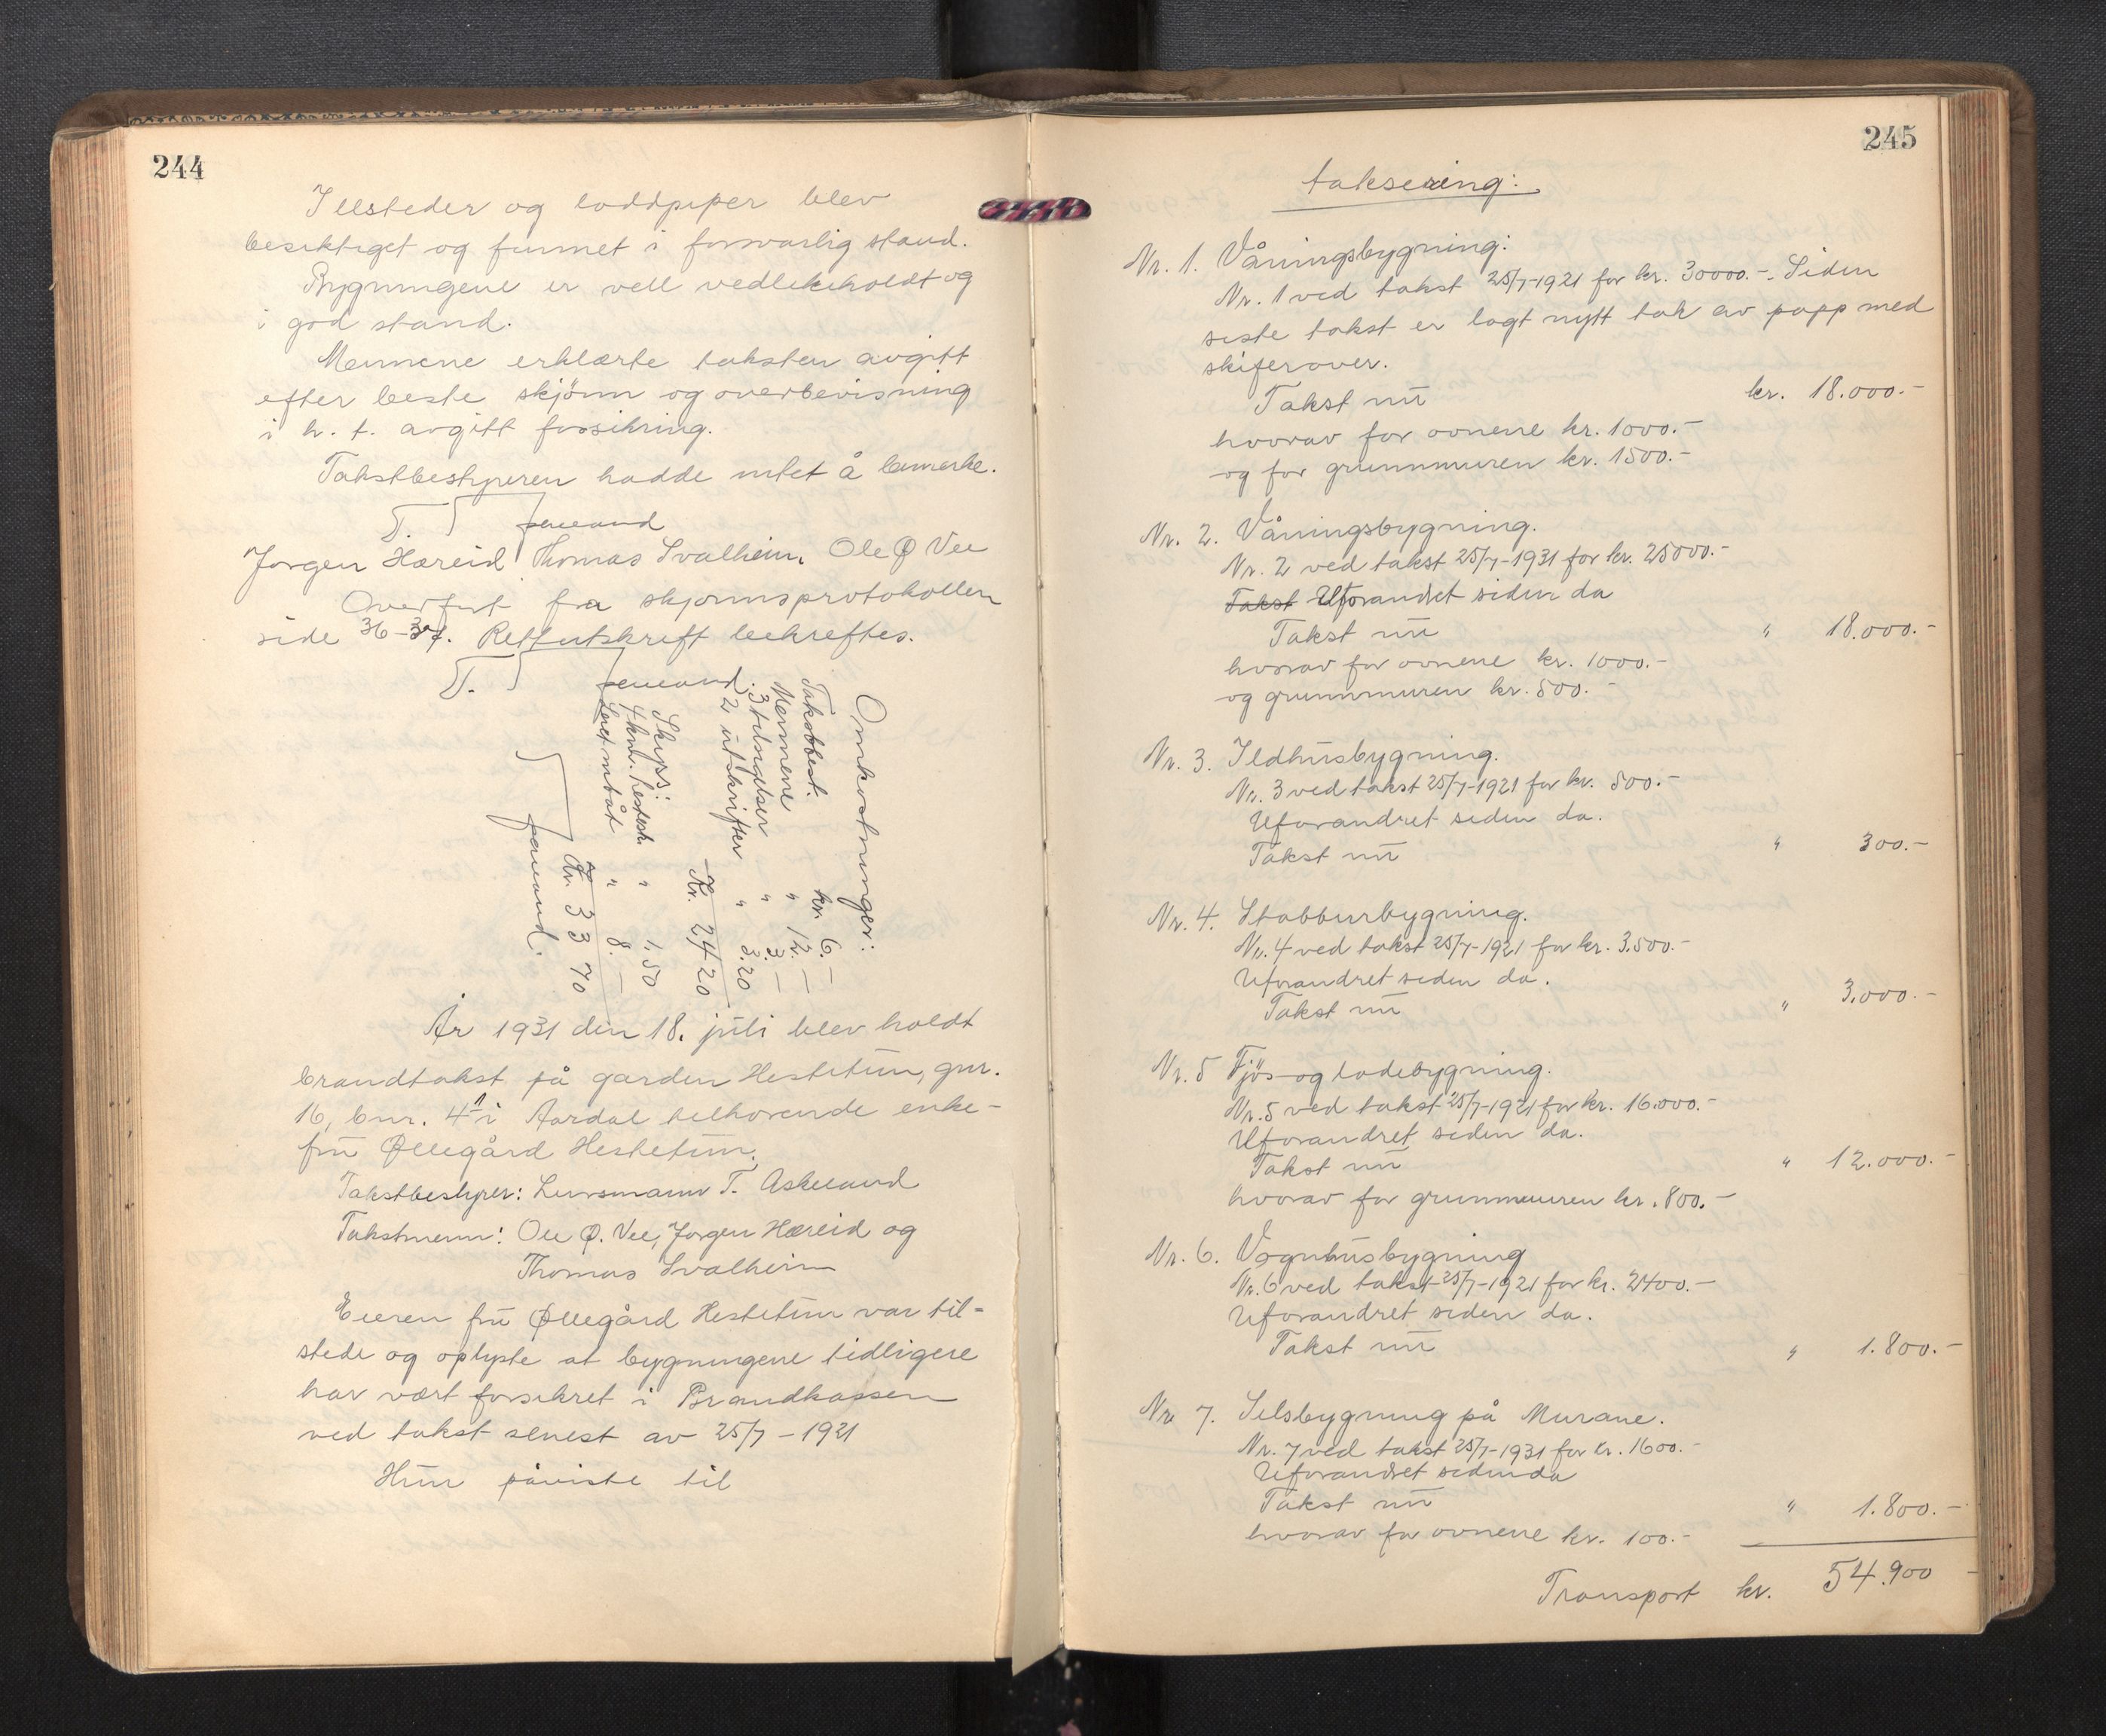 244
Illsteder og loddpiper blev
besiktiget og funnet i forsvarlig stand.
Bygningene er vell vedlikeholdt og
i god stand.
Mennene erklærte taksten avgitt
efter beste skjönn og overbevisning
i h. t. avgitt forsikring.
Takstbestyreren hadde intet å bemerke.
T. Askeland
Jorgen Hæreid Thomas Svalheim, Ole Ø Vee
Overfört fra skjonnsprotokollen
side 36-37. Rettutskrift bekreftes.
T. Askeland.
Omkostninger:
Takstbest. kr. 6.—
Mennene " 12.—
3 tilsigelser " 3.—
2 utskrifter " 3.20
Kr. 24 20
Skyss:
4 km. hestesk. " 1.50
Leiet mbåt " 8.—
Kr. 33 70
Askeland.
År 1931 den 18. juli blev holdt
brandtakst på garden Hestetun, gnr.
16, bnr. 4 i Aardal tilhorende enke-
frü Øllegård Hestetun.
Takstbestyrer: Lensmann T. Askeland
Takstmenn: Ole Ø. Vee, Jorgen Hæreid og
Thomas Svalheim
Eieren frü Øllegård Hestetun var til=
stede og oplyste at bygningene tidligere
har vært forsikret i Brandkassen
ved takst senest av 25/7 - 1921
Hun påviste til
245
taksering:
Nr. 1. Våningsbygning:
Nr. 1 ved takst 25/7-1921 for kr. 30000.-. Siden
siste takst er lagt nytt tak av papp med
skifer over.
Takst nü kr. 18.000.-
hvorav for ovnene kr. 1000.-
og for grunnmuren kr. 1500.-
Nr. 2. Våningsbygning.
Nr. 2 ved takst 25/7-1931 for kr. 25000.-
Takst Uforandret siden da
Takst nü " 18.000.-
hvorav for ovnene kr. 1000.-
og grunnmuren kr. 500.-
Nr. 3. Ildhüsbygning.
Nr. 3 ved takst 25/7-1921 for kr. 500.-
Uforandret siden da.
Takst nü " 300.-
Nr. 4. Stabbursbygning.
Nr. 4 ved takst 25/7-1921 for kr. 3.500.-
Uforandret siden da.
Takst nü " 3.000.-
Nr. 5 Fjös- og ladebygning.
Nr. 5 ved takst 25/7-1921 for kr. 16.000.-
Uforandret siden da.
Takst nü " 12.000.-
hvorav for grunnmuren kr. 800.-
Nr. 6. Vognhusbygning
Nr. 6 ved takst 25/7-1921 for kr. 2400.-
Uforandret siden da.
Takst nü " 1.800.-
Nr. 7. Selsbygning på Murane.
Nr. 7 ved takst 25/7-1931 for kr. 1600.-
Uforandret siden da
Takst nü " 1.800.-
hvorav for ovnene kr. 100.-
Transport kr. 54.900